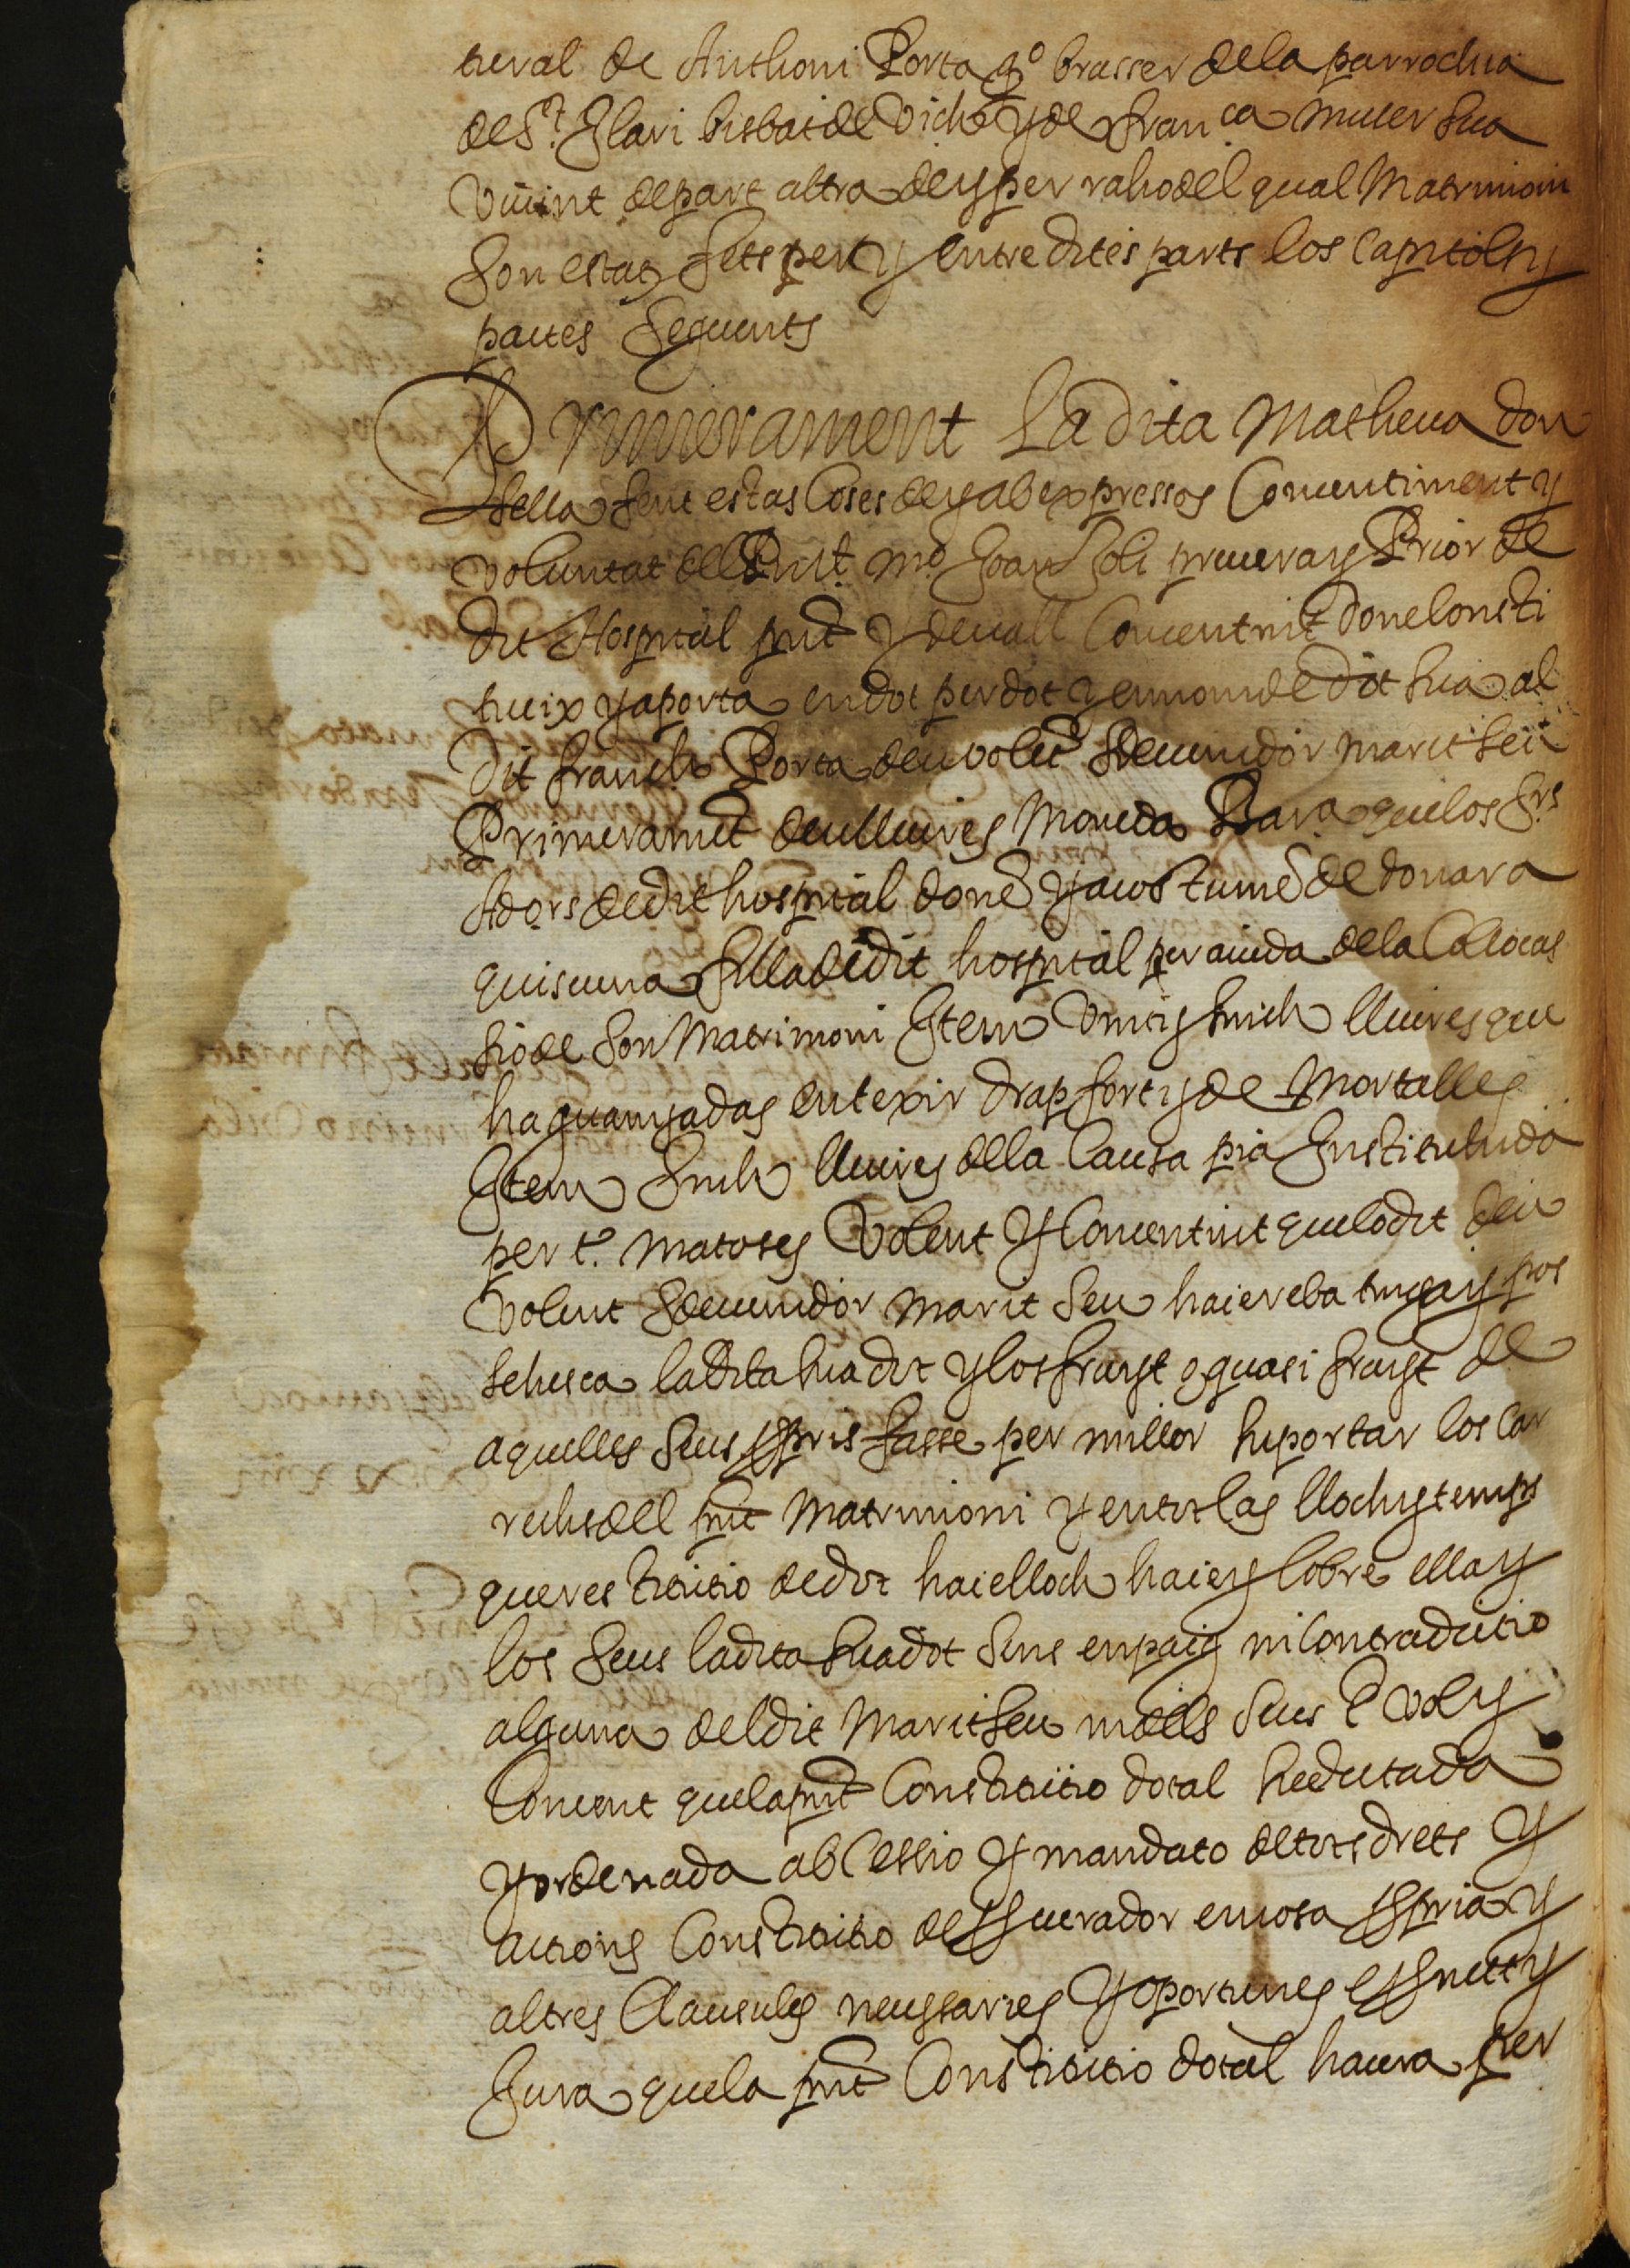 tural de Anthoni Porta qº brasser dela parrochia
de St. Ylari bisbat de Vich y de Franca muller sua
vivint de part altra de y per raho del qual Matrimoni
son estats fets per y entre dites parts los capitols y
pactes seguents
Primerament la dita Matheua don
sella fent estas coses de y ab expressos consentiment y
voluntat del Rnt. mº Joan Soli prevera y Prior de
dit Hospital pnt y devall consentint done consti
tueix y aporta en dot per dot y en nom de dot sua al
dit Franch Porta deu volent sdevenidor marit seu
Primeramt deu lliures moneda Bara que los Srs
Adors de dit hospital donen y acostumen de donar a
quiscuna filla de dit hospital per aiuda dela collocas
sio de son matrimoni Item vint y sinch lliures que
ha guanyadas en texir drap fort y de mortalles
Item sinch lliures della causa pia Instituhida
per t. matoses volent y consentint que lo dit deu
volent sdevenidor marit seu haie reba tinga y pos
sehesca la dita sua dot y los fruyt o quasi fruyt de
aquelles seus ppris fasse per millor suportar los car
rechs del pnt matrimoni y en tot las lloch y temps
que restitutio de dot haie lloch haie y cobre ella y
los seus la dita sua dot sens enpaig ni contradictio
alguna del dit marit seu ni dels seus E vol y
consent que la pnt constitutio dotal sie dictada
y ordenada ab cessio y mandato de tots drets y
actions constitutio de pcurador en cosa ppria y
altres clausules necessaries y oportunes e pmett y
Jura que la pnt constitutio dotal haura per